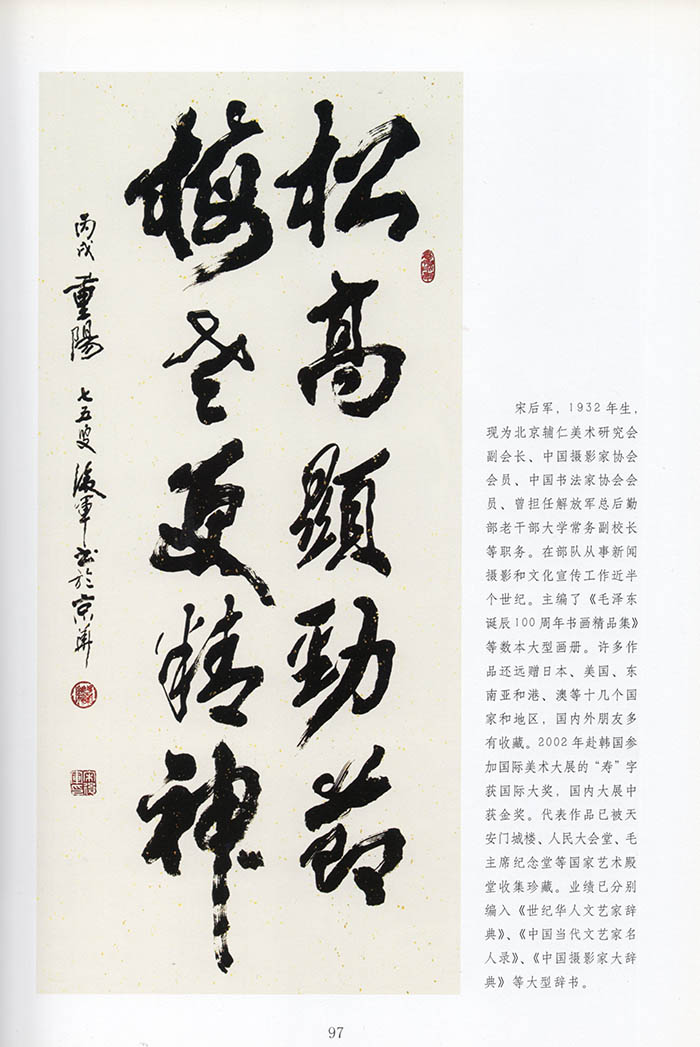 松高顯勁節
梅老更精神
丙戌 重陽 七五叟 後軍書於京華
宋后军，1932年生，
现为北京辅仁美术研究会
副会长、中国摄影家协会
会员、中国书法家协会会
员、曾担任解放军总后勤
部老干部大学常务副校长
等职务。在部队从事新闻
摄影和文化宣传工作近半
个世纪。主编了《毛泽东
诞辰100周年书画精品集》
等数本大型画册。许多作
品还远赠日本、美国、东
南亚和港、澳等十几个国
家和地区，国内外朋友多
有收藏。2002年赴韩国参
加国际美术大展的“寿”字
获国际大奖，国内大展中
获金奖。代表作品已被天
安门城楼、人民大会堂、毛
主席纪念堂等国家艺术殿
堂收集珍藏。业绩已分别
编入《世纪华人文艺家辞
典》、《中国当代文艺家名
人录》、《中国摄影家大辞
典》等大型辞书。
97